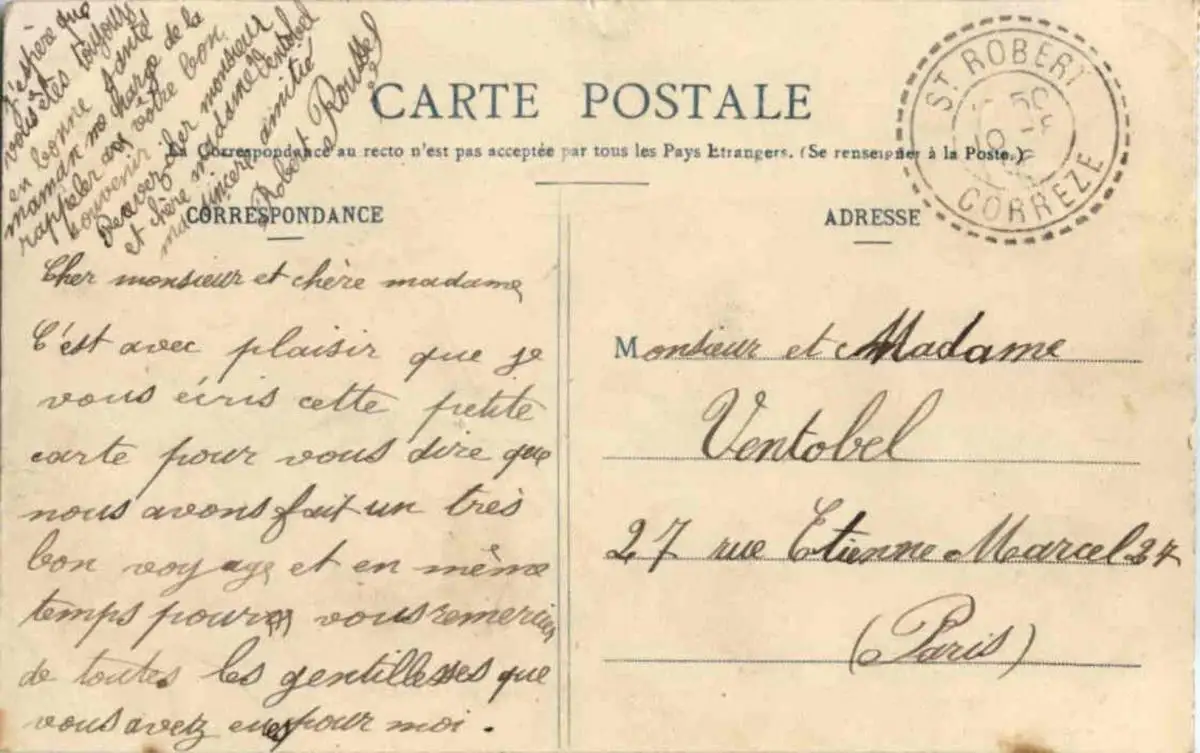 CARTE POSTALE
La Correspondance au recto n'est pas acceptée par tous les Pays Etrangers. (Se renseigner à la Poste.)
CORRESPONDANCE
Cher monsieur et chère madame,
C'est avec plaisir que je
vous écris cette petite
carte pour vous dire que
nous avons fait un très
bon voyage et en même
temps pour vous remercier
de toutes les gentillesses que
vous avez eues pour moi.
J'espère que
vous êtes toujours
en bonne santé
maman me charge de la
rappeler à votre bon
souvenir.
Recevez cher monsieur
et chère madame Ventobel
ma sincère amitié
Robert Roussel
ADRESSE
Monsieur et Madame
Ventobel
27 rue Etienne Marcel 27
(Paris)
ST ROBERT
CORREZE